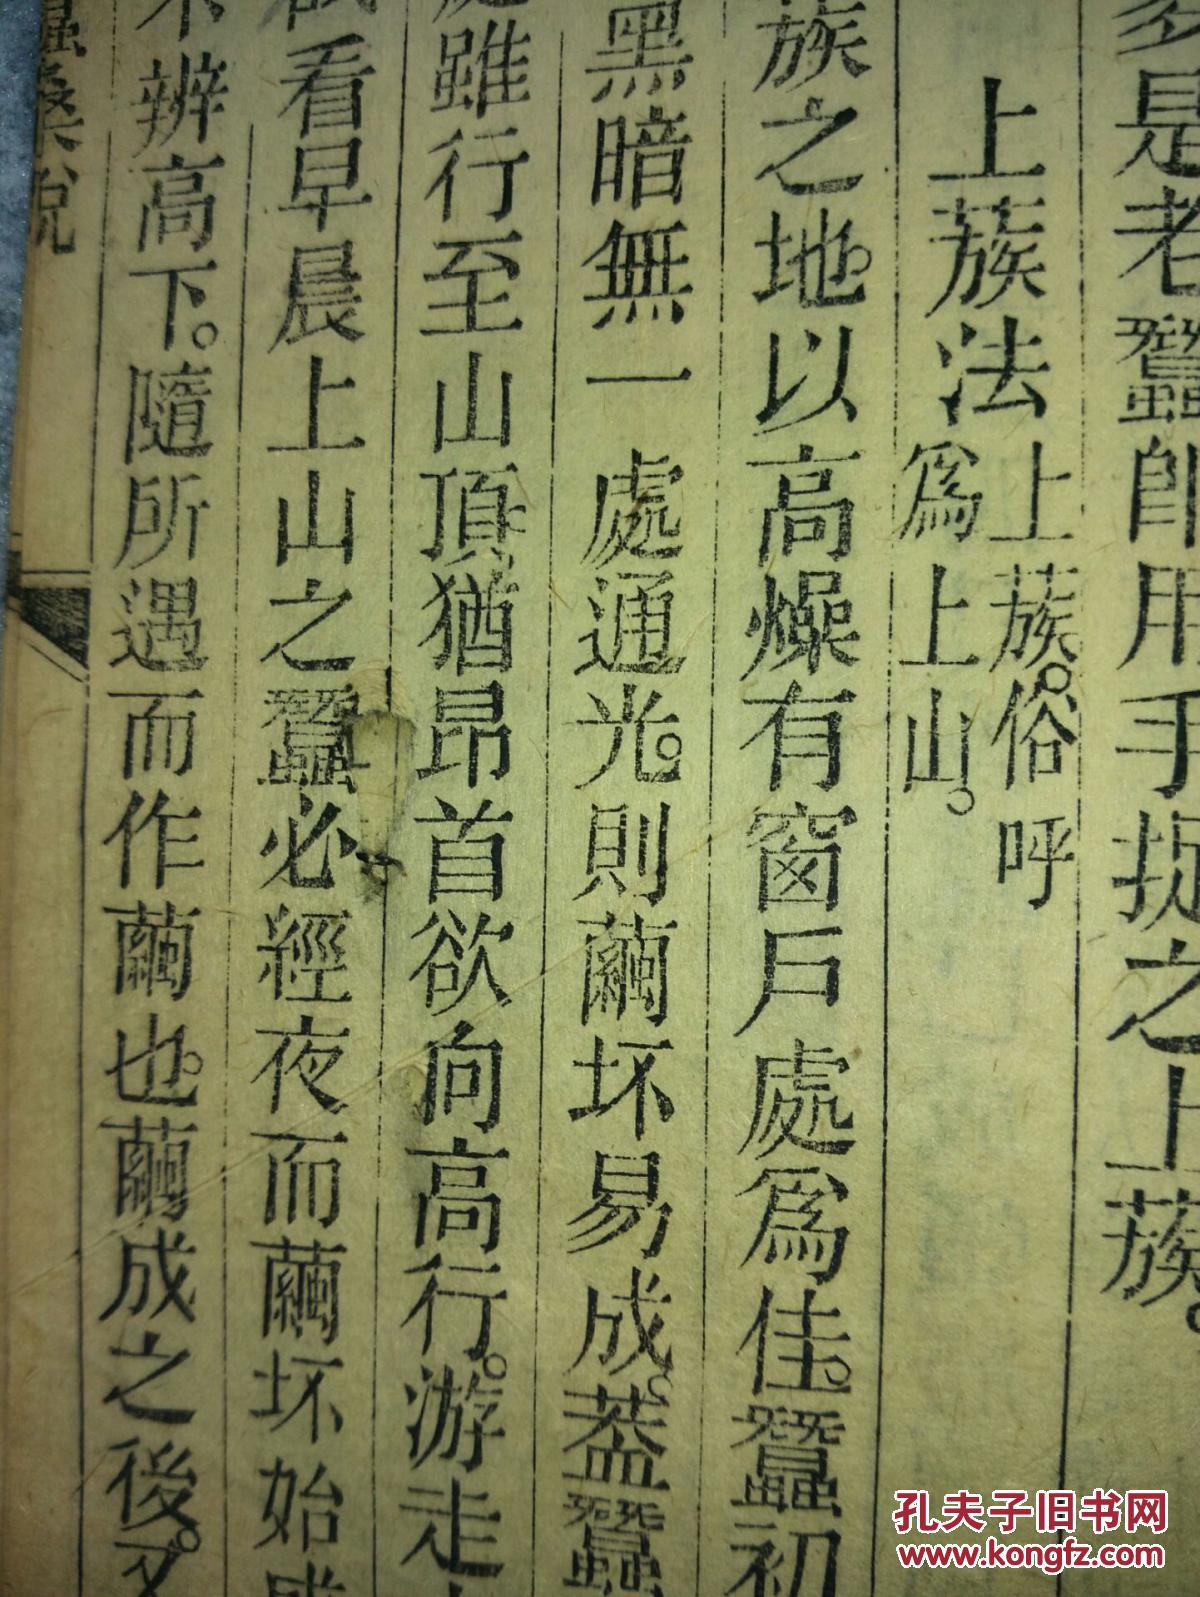 是老蠶卽用手捉之上蔟。
上蔟法
上蔟。俗呼
爲上山。
蔟之地。以高燥有窗戶處爲佳。蠶初
黑暗無一處通光。則繭坏易成。葢蠶
雖行至山頂。猶昂首欲向高行。游走
看早晨上山之蠶。必經夜而繭坏始
辨高下。隨所遇而作繭也。繭成之後。又
蠶桑說
孔夫子旧书网
www.kongfz.com